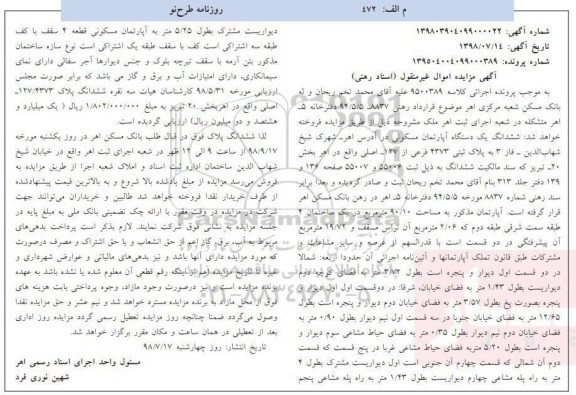 م الف: ۴۷۲
روزنامه طرح‌نو
شماره آگهی: ۱۳۹۸۰۳۹۰۴۰۹۹۰۰۰۰۲۲
تاریخ آگهی: ۱۳۹۸/۰۷/۱۴
شماره پرونده: ۱۳۹۵۰۴۰۰۴۰۹۹۰۰۰۳۸۹
آگهی مزایده اموال غیرمنقول (اسناد رهنی)
به موجب پرونده اجرائی کلاسه ۹۵۰۰۳۸۹ علیه آقای محمد تخم ریحان و له
بانک مسکن شعبه مرکزی اهر موضوع قرارداد رهنی ۸۸۳۷ـ ۹۴/۵/۵ دفترخانه ۵ـ
اهر متشکله در شعبه اجرای ثبت اهر ملک مشروحه ذیل از طریق مزایده فروخته
خواهد شد: ششدانگ یک دستگاه آپارتمان مسکونی در آدرس اهرـ شهرک شیخ
شهاب‌الدین ـ فاز ۳ به پلاک ثبتی ۴۳۷۳ فرعی از ۱۲۷ـ اصلی واقع در اهر بخش
۲۰ـ تبریز که سند مالکیت ششدانگ به ذیل ثبت ۵۵۰۰۶ و ۵۵۰۰۷ صفحه ۱۳۶ و
۱۳۹ دفتر جلد ۳۱۳ بنام آقای محمد تخم ریحان ثبت و صادر گردیده و بعدا برابر
سند رهنی شماره ۸۸۳۷ مورخه ۹۴/۵/۵ دفترخانه ۵ـ اهر در رهن بانک مسکن اهر
قرار گرفته است. آپارتمان مذکور به مساحت ۹۰/۱۰ مترمربع در ساختمان ۴
طبقه سمت شرقی طبقه دوم که ۲/۰۶ مترمربع آن تراس مسقف و ۱۹/۷۲ مترمربع
آن پیشرفتگی در دو قسمت است با قدرالسهم از عرصه و سایر مشاعات و
مشترکات طبق قانون تملک آپارتمانها و آئین‌نامه اجرائی آن حدودا اربعه: شمالا
در دو قسمت اول دیوار و پنجره است بطول ۳/۷۲ متر به فضای خیابان دوم
دیواریست بطول ۱/۴۳ متر به فضای خیابان، شرقا: در دوقسمت اول دیواریست و
پنجره بصورت پخ بطول ۳/۵۷ متر به فضای خیابان دوم دیوار و پنجره است بطول
۱۲/۶۵ متر به فضای خیابان جنوبا در سه قسمت اول نیم دیوار بطول ۰/۹۰ متر به
فضای خیابان دوم نیم دیوار بطول ۰/۳۵ متر به فضای حیاط مشاعی سوم دیوار و
پنجره است بطول ۵/۲۰ متربه فضای حیاط مشاعی غربا در پنج قسمت که قسمت
دوم آن شمالی که قسمت چهارم آن جنوبی است اول دیواریست مشترک بطول ۴
متر به راه پله مشاعی چهارم دیواریست بطول ۱/۴۳ متر به راه پله مشاعی پنجم
دیواریست مشترک بطول ۵/۲۵ متر به آپارتمان مسکونی قطعه ۴ سقف با کف
طبقه سه اشتراکی است کف با سقف طبقه یک اشتراکی است نوع سازه ساختمان
مذکور بتن آرمه با سقف تیرچه بلوک و جنس دیوارها آجر سفالی دارای نمای
سیمانکاری، دارای امتیازات آب و برق و گاز می باشد که برابر صورت مجلس
ارزیابی مورخه ۹۸/۵/۳۱ کارشناسان هیات سه نفره ششدانگ پلاک ۱۲۷/۴۳۷۳ـ
اصلی واقع در اهربخش ۲۰ تبریز به مبلغ ۱/۸۰۲/۰۰۰/۰۰۰ ریال ( یک میلیارد و
هشتصد و دو میلیون ریال) ارزیابی گردیده است.
لذا ششدانگ پلاک فوق در قبال طلب بانک مسکن اهر در روز یکشنبه مورخه
۹۸/۹/۱۷ از ساعت ۹ الی ۱۲ ظهر در شعبه اجرای ثبت اهر واقع در خیابان شیخ
شهاب الدین ساختمان اداره ثبت اسناد و املاک شعبه اجرا از طریق مزایده به
فروش می‌رسد مزایده از مبلغ یادشده بالا شروع و به بالاترین قیمت پیشنهادده
از طرف خریدار نقدا فروخته خواهد شد طالبین و خریداران می‌توانند جهت
شرکت در مزایده در وقت مقرر با ارائه چک تضمینی بانک ملی به مبلغ پایه در
جلسه مزایده به نشانی فوق شرکت نمایند. لازم بذکر است پرداخت بدهی‌های
مربوط به آب، برق، گاز اعم از حق انشعاب و یا حق اشتراک و مصرف درصورت
که مورد مزایده دارای آنها باشد و نیز بدهی‌های مالیاتی و عوارض شهرداری و
برنده مزایده است و نیز درصورت وجود مازاد، وجوه پرداختی بابت هزینه های
فوق از محل مازاد به برنده مزایده مسترد خواهد شد و نیم عشر و حق مزایده نقدا
وصول می‌گردد ضمنا چنانچه روز مزایده تعطیل رسمی گردد مزایده روز اداری
بعد از تعطیلی در همان ساعت و مکان مقرر برگزار خواهد شد.
تاریخ انتشار: روز چهارشنبه ۹۸/۷/۱۷
مسئول واحد اجرای اسناد رسمی اهر
شهین نوری فرد